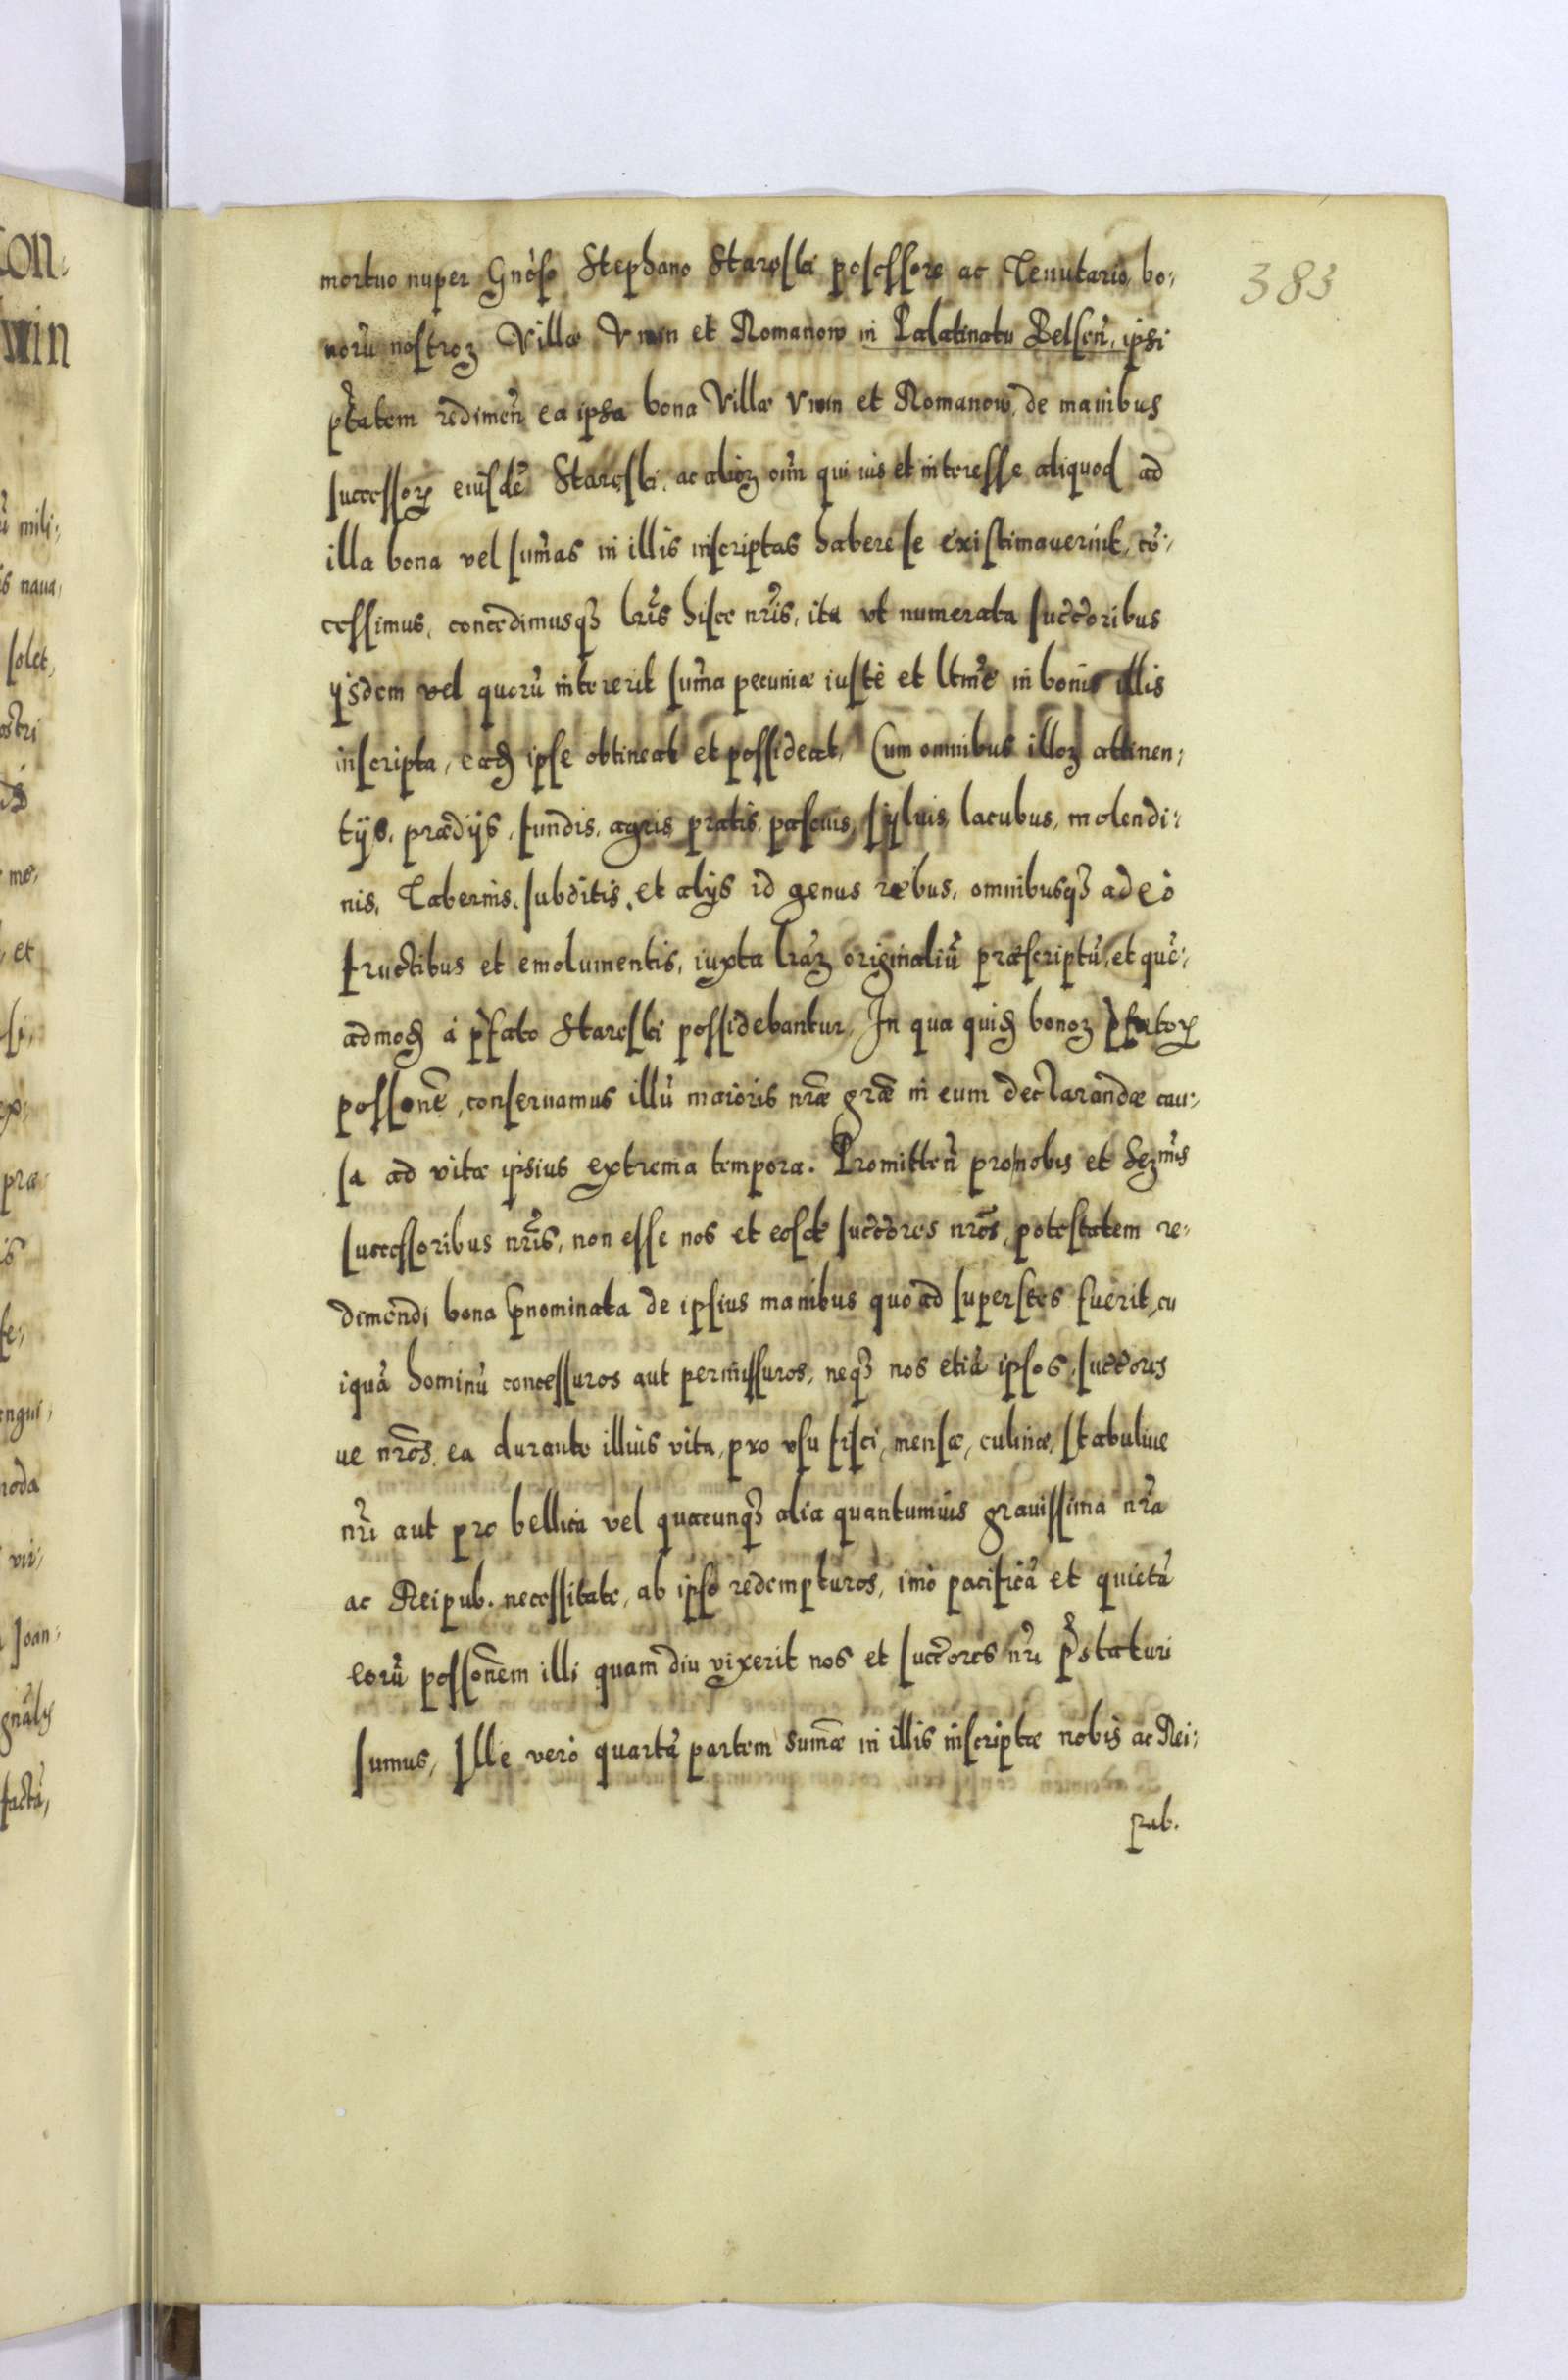 383
mortuo nuper Gnoso Stephano Staręski possessore ac Tenutario, bo:
norũ nostroꝝ Villæ Vwin et Romanow in Palatinatu Belseñ, ipsi
ptãtem redimeñ ea ipsa bona Villæ Vwin et Romanow, de manibus
successoꝝ eiusdẽ Staręski, ac alioꝝ oĩm qui ius et interesse aliquod ad
illa bona vel sum̃as in illis inscriptas habere se existimauerint, cõ:
cessimus, concedimusqꝫ lr̃is hisce nr̃is, ita vt numerata succ̃oribus
ijsdem vel quorũ intererit sum̃a pecuniæ iustè et ltm̃è in bonis illis
inscripta, eadꝫ ipse obtineat et possideat, Cum omnibus illoꝝ attinen:
tijs, prædijs, fundis, agris, pratis, pascuis, syluis, lacubus, molendi:
nis, Tabernis, subditis, et alijs id genus rebus, omnibusqꝫ adeò
fructibus et emolumentis, iuxta lr̃aꝝ originaliũ præscriptũ, et quẽ:
admodꝫ à p̃fato Staręski possidebantur, In qua quidꝫ bonoꝝ p̃fatoꝝ
possonẽ, conseruamus illũ maioris nræ̃ græ̃ in eum declarandæ cau:
sa ad vitæ ipsius extrema tempora. Promitteñ pro nobis et Serm̃is
successoribus nr̃is, non esse nos et eosdẽ succ̃ores nr̃os, potestatem re:
dimendi bona p̃nominata de ipsius manibus quoad superstes fuerit, cu
iquã hominũ concessuros aut permissuros, neqꝫ nos etiã ipsos, succ̃ores
ue nr̃os, ea durante illius vita, pro vsu fisci, mensæ, culinæ, stabuliue
nr̃i aut pro bellica vel quacunqꝫ alia quantumuis grauissima nr̃a
ac Reipub. necessitate, ab ipso redempturos, imò pacificã et quietã
eorũ possonẽm illi quamdiu vixerit nos et succ̃ores nr̃i p̃staturi
sumus, Ille verò quartã partem sum̃æ in illis inscriptæ nobis ac Rei:
pub.